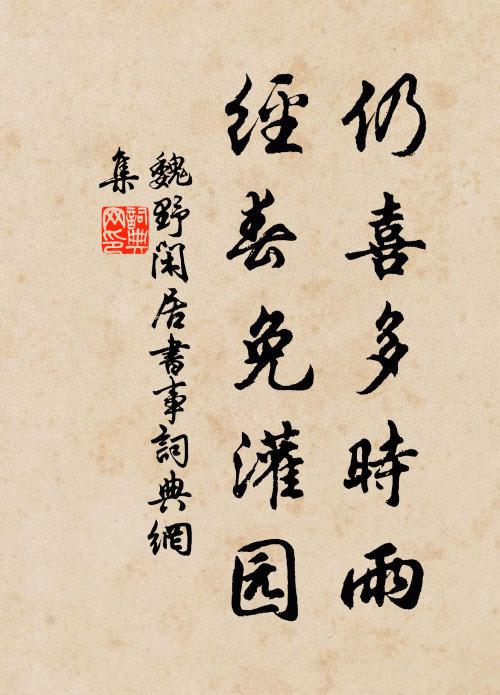 仍喜多時雨
經春免灌园
魏野閑居書事詞典網
集
詞典網印